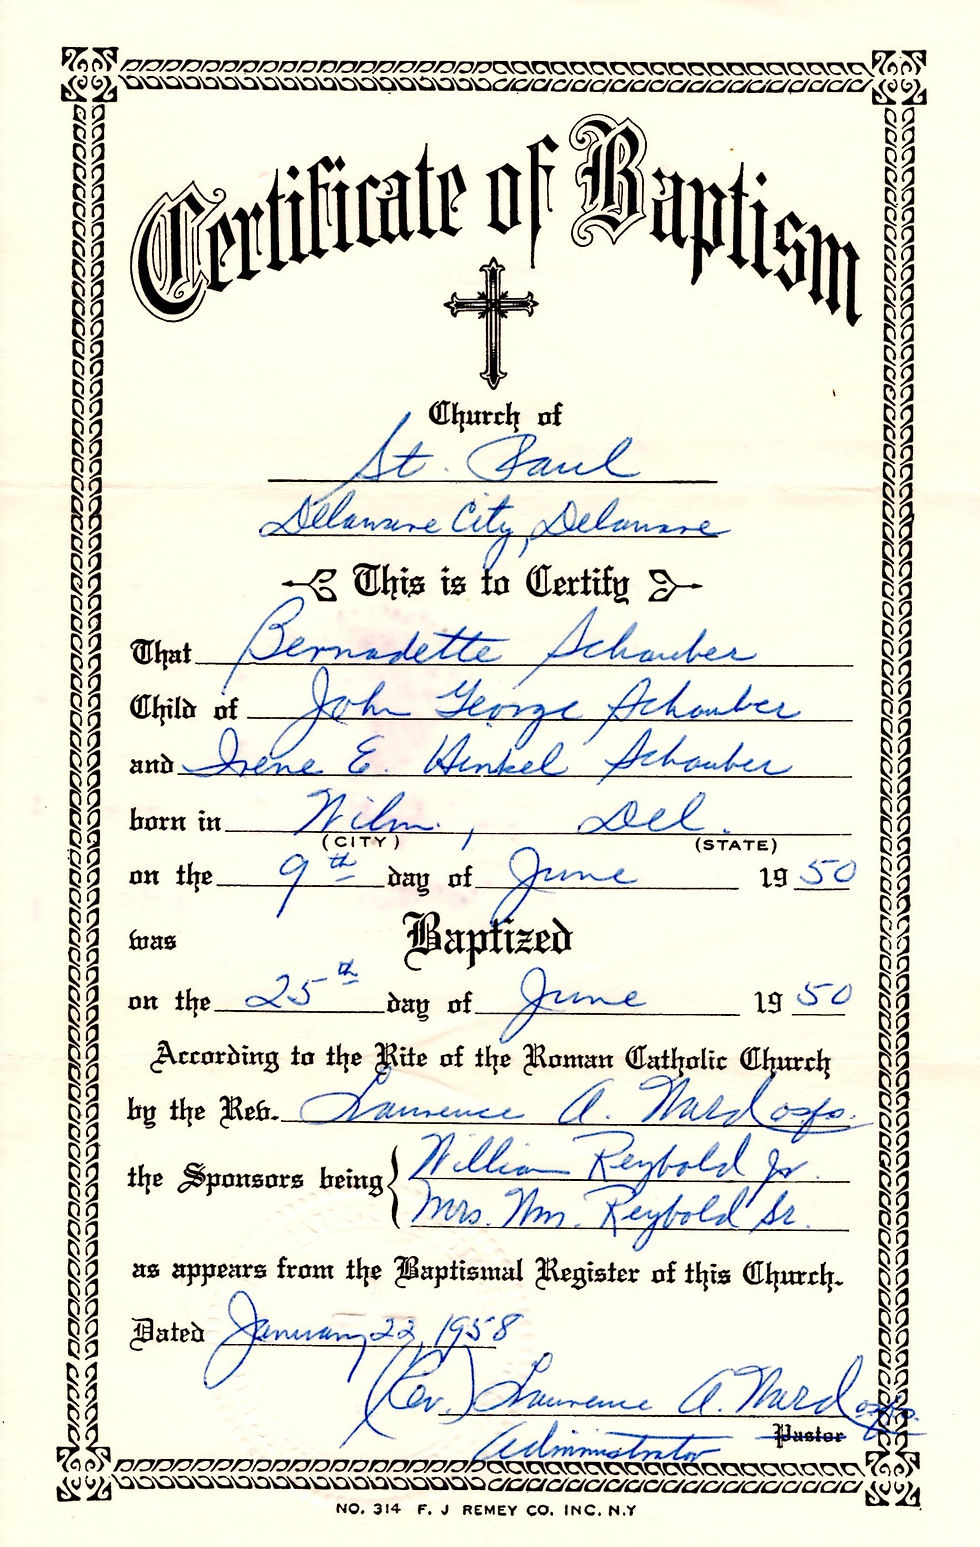 Certificate of Baptism
Church of
St. Paul
Delaware City, Delaware
This is to Certify
That Bernadette Schauber
Child of John George Schauber
and Irene E. Hinkel Schauber
born in Wilm., Del.
(CITY) (STATE)
on the 9th day of June 1950
was Baptized
on the 25th day of June 1950
According to the Rite of the Roman Catholic Church
by the Rev. Lawrence A. Ward osfs.
the Sponsors being { William Reybold Jr.
Mrs. Wm. Reybold Sr.
as appears from the Baptismal Register of this Church.
Dated January 22, 1958
(Rev.) Lawrence A. Ward osfs.
Administrator Pastor
NO. 314 F. J REMEY CO. INC. N.Y